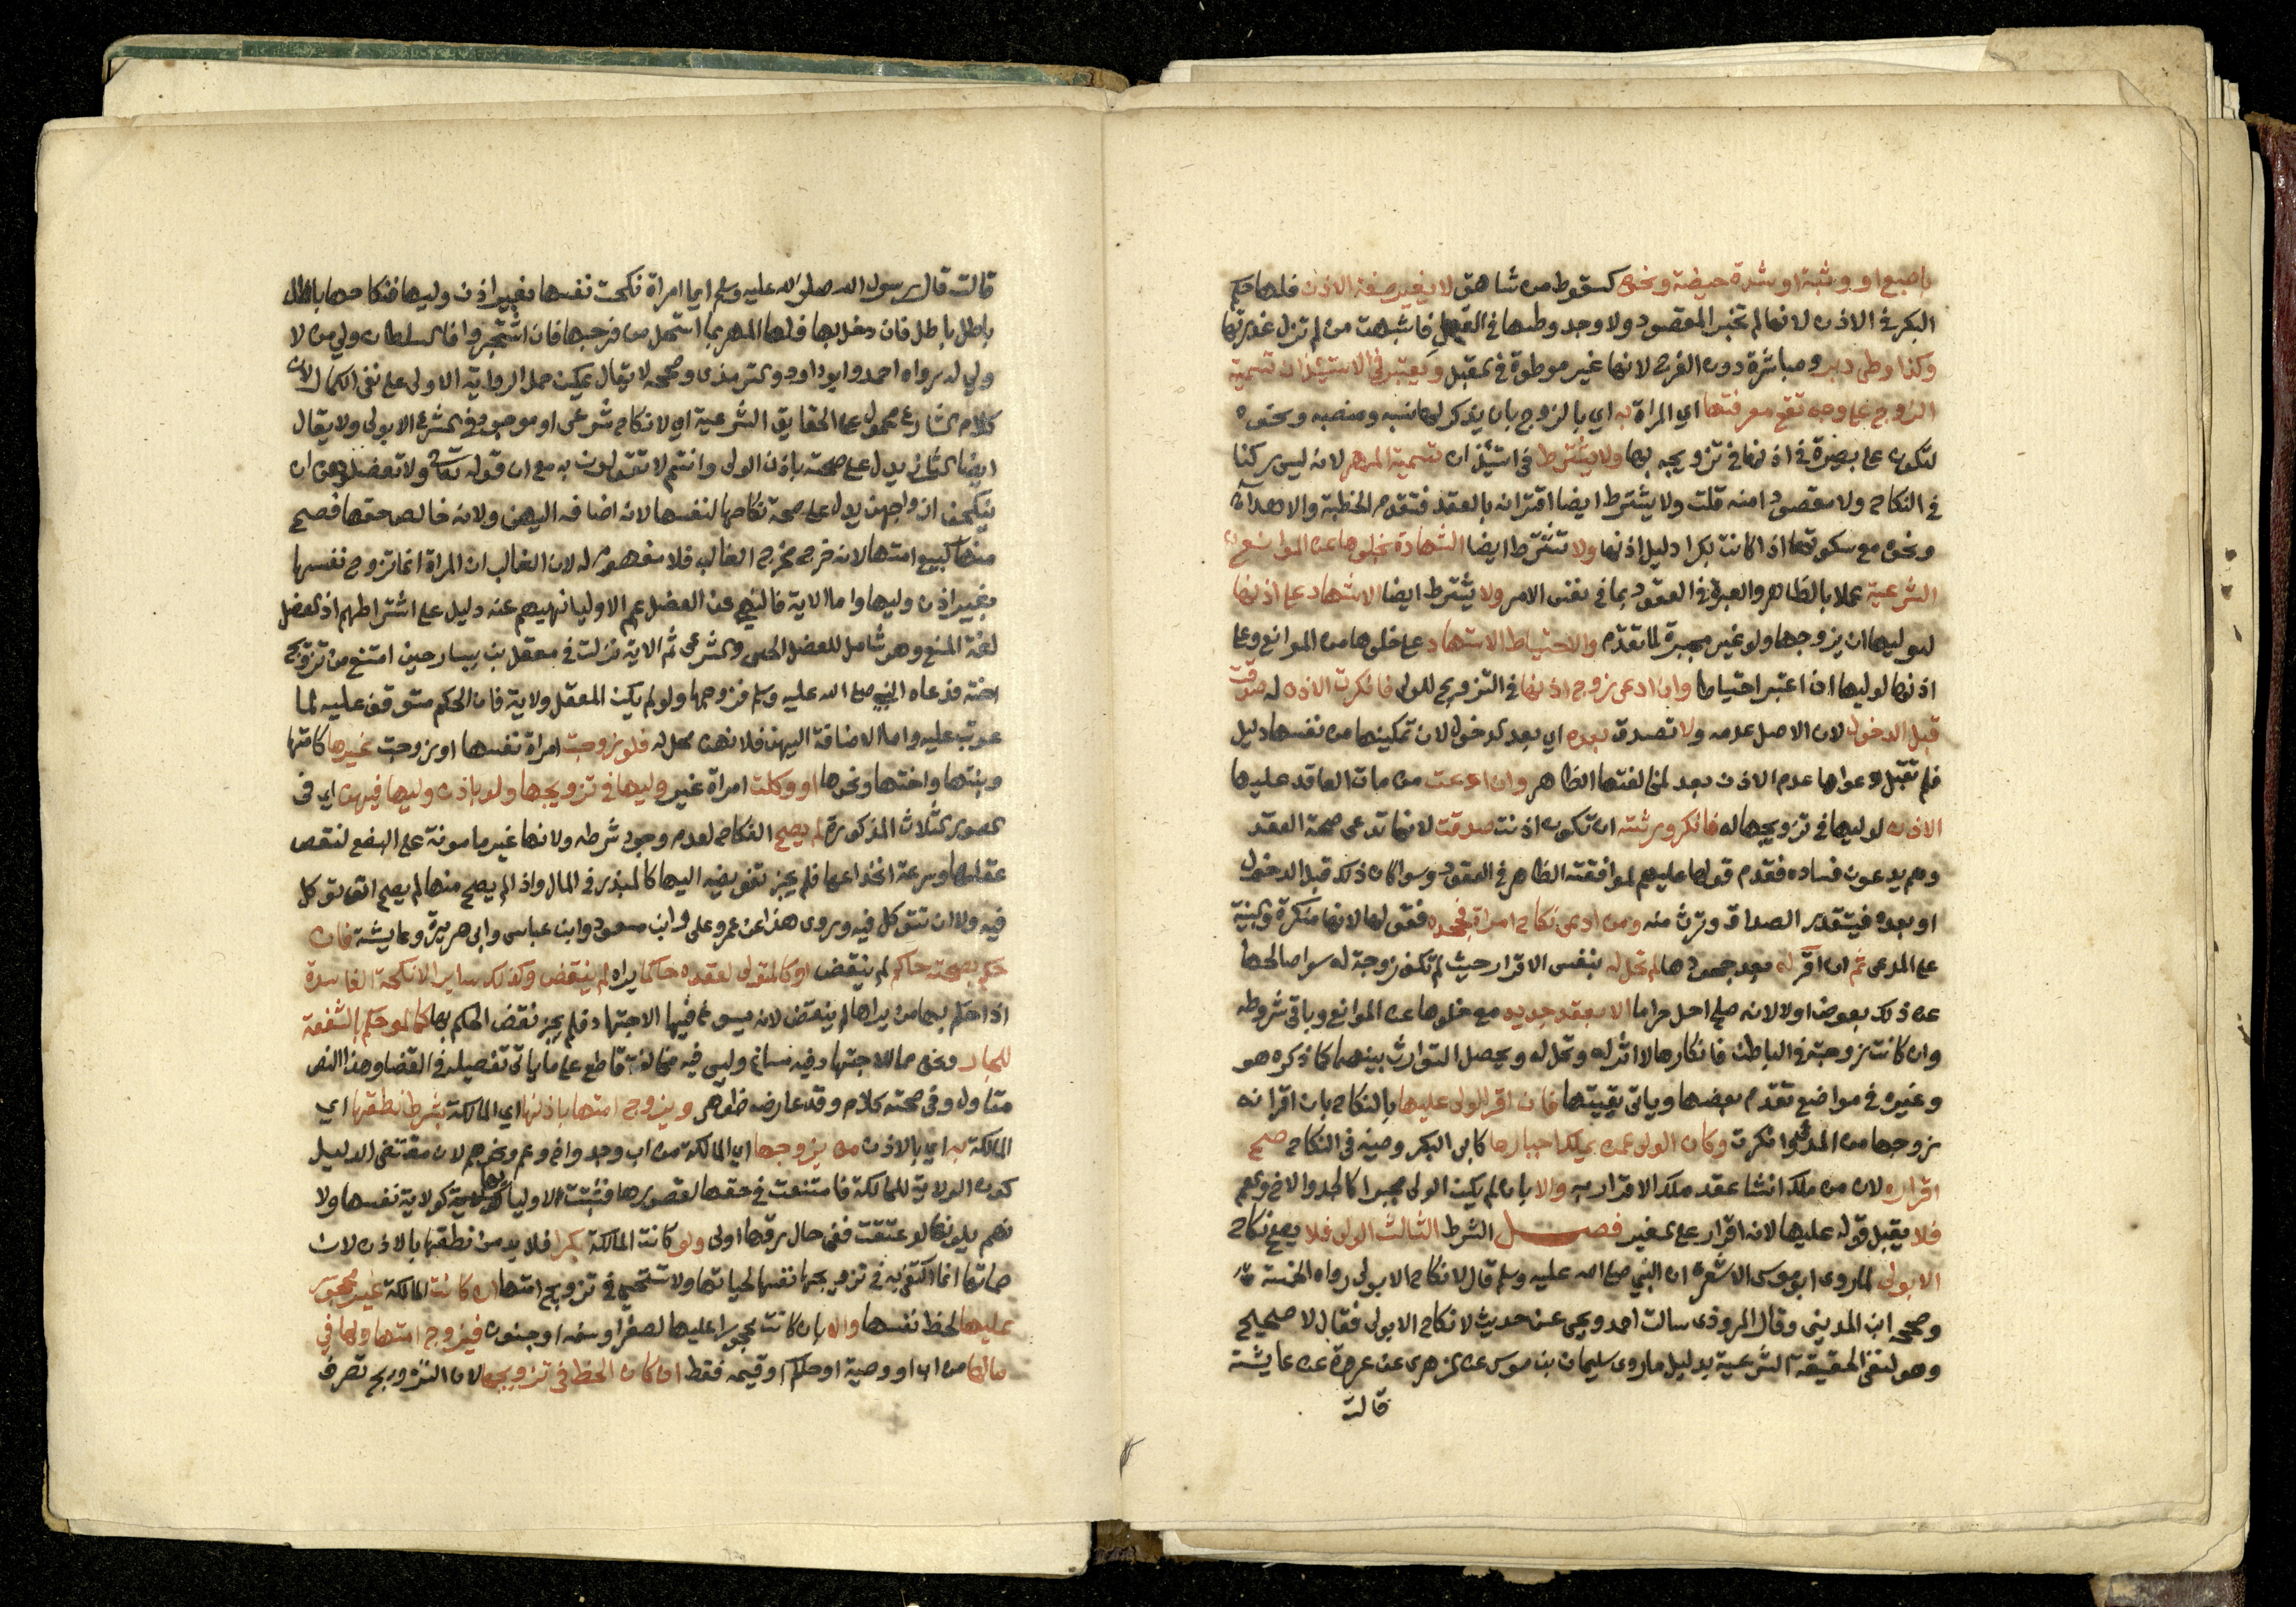 باصبع او وثبة او شدة حيضة ونحوه كسقوط من شاهق لا يغير صفة الاذن فلها حكم
البكر في الاذن لانها لم تخبر المقصود ولا وجد وطيها في القبل فاشبهت من لم تزل عذرتها
وكذا وطئ دبر ومباشرة دون الفرج لانها غير موطوة في القبل ويعتبر في الاستيذان تسمية
الزوج على وجه تقع معرفتها اي المراة به اي بالزوج بان يذكر لها نسبه ومنصبه ونحوه
لتكون على بصيرة في اذنها في تزويجه بها ولا يشترط في استيذان تسمية المهر لانه ليس ركنا
في النكاح ولا مقصود امنه قلت ولا يشترط ايضا اقترانه بالعقد فتقدم الخطبة والاهداء
ونحوه مع سكوتها اذا كانت بكرا دليل اذنها ولا تشترط ايضا الشهادة بخلوها عن الموانع
الشرعية عملا بالظاهر والعبرة في العقود بما في نفس الامر ولا يشترط ايضا الاشهاد على اذنها
لوليها ان يزوجها ولو غير مجبرة لما تقدم والاحتياط الاشهاد على خلوها من الموانع وعلى
اذنها لوليها ان اعتبر احتياطا وان ادعى زوج اذنها في التزويج للولي فانكرت الاذن له صدقت
قبل الدخول لان الاصل عدمه ولا تصدق بعده اي بعد الدخول لان تمكينها من نفسها دليل
فلم تقبل دعواها عدم الاذن بعد لمخالفتها الظاهر وان ادعت من مات العاقد عليها
الاذن لوليها في تزويجها له فانكر ورثته ان تكون اذنت صدقت لانها تدعي صحة العقد
وهم يدعون فساده فقدم قولها عليهم لموافقته الظاهر في العقود وسوا كان ذلك قبل الدخول
او بعده فيتقدر الصداق وترث منه ومن ادعى نكاح امراة فجحدته فقولها لانها منكرة والبينة
على المدعي ثم ان اقرت له بعد جحودها لم تحل له بنفس الاقرار حيث لم تكن زوجة له سوا صالحها
عن ذلك بعوض اولا لانه صلح احل حراما الا بعقد جديد مع خلوها عن الموانع وباقي شروطه
وان كانت زوجته في الباطن فانكارها لا اثر له وتحل له ويحصل التوارث بينهما كما ذكره هو
وغيره في مواضع تقدم بعضها وياتي بقيتها فان اقر الولي عليها بالنكاح بان اقر انه
زوجها من المدعي وانكرت وكان الولي ممن يملك اجبارها كابي البكر ووصيه في النكاح صح
اقراره لان من ملك انشا عقد ملك الاقرار به والا بان لم يكن الولي مجبرا كالجد والاخ والعم
فلا يقبل قوله عليها لانه اقرار على الغير فصل الشرط الثالث الولي فلا يصح نكاح
الا بولي لما روى ابو موسى الاشعري ان النبي صلى الله عليه وسلم قال لا نكاح الا بولي رواه الخمسة
وصححه ابن المديني وقال المروذي سالت احمد ويحيى عن حديث لا نكاح الا بولي فقال لا صحيح
وهو لنفي الحقيقة الشرعية بدليل ما روى سليمان بن موسى عن الزهري عن عروة عن عايشة
قالت
قالت قال رسول الله صلى الله عليه وسلم ايما امراة نكحت نفسها بغير اذن وليها فنكاحها باطل
باطل باطل فان دخل بها فلها المهر بما استحل من فرجها فان اشتجروا فالسلطان ولي من لا
ولي له رواه احمد وابو داود والترمذي وصححه لا يقال يمكن حمل الرواية الاولى على نفي الكمال لان
كلام الشارع محمول على الحقايق الشرعية اي لا نكاح شرعي او موجود في الشرع الا بولي ولا يقال
ايضا الثاني يدل على صحته باذن الولي وانتم لا تقولون به مع ان قوله تعالى ولا تعضلوهن ان
ينكحن ازواجهن يدل على صحة نكاحها لنفسها لانه اضافه اليهن ولانه خالص حقها فصح
منها كبيع امتها لانه خرج مخرج الغالب فلا مفهوم له لان الغالب ان المراة انما تزوج نفسها
بغير اذن وليها واما الاية فالنهي عن العضل عم الاوليا نهيهم عنه دليل على اشتراطهم اذ العضل
لغة المنع وهو شامل للعضل الحسي والشرعي ثم الاية نزلت في معقل بن يسار حين امتنع من تزويج
اخته فدعاه النبي صلى الله عليه وسلم فزوجها ولو لم يكن لمعقل ولاية فان الحكم متوقف عليه لما
عوتب عليه واما الاضافة اليهن فلانهن محل له فلو زوجت امراة نفسها او زوجت غيرها كامتها
وبنتها واختها ونحوها او وكلت امراة غير وليها في تزويجها ولو باذن وليها فيهن اي في
الصور الثلاث المذكورة لم يصح النكاح لعدم وجود شرطه ولانها غير مامونة على البضع لنقص
عقلها وسرعة انخداعها فلم يجز تفويضه اليها كالمبذر في المال واذا لم يصح منها لم يصح ان توكل
فيه ولا ان تتوكل فيه وروي هذا عن عمر وعلي وابن مسعود وابن عباس وابي هريرة وعايشة فان
حكم بصحته حاكم لم ينقض او كان المتولي لعقده حاكما يراه لم ينقض وكذلك ساير الانكحة الفاسدة
اذا حكم بها من يراها لم ينقض لانه يسوغ فيها الاجتهاد فلم يجز نقض الحكم بها كما لو حكم بالشفعة
للجار ونحوه مما للاجتهاد فيه مساغ وليس فيه مخالفة قاطع على ما ياتي تفصيله في القضا وهذا النص
متاول وفي صحته كلام وقد عارضه ظواهر ويزوج امتها باذنها اي المالكة بشرط نطقها اي
المالكة به اي بالاذن من يزوجها اي المالكة من اب وجد واخ وعم ونحوهم لان مقتضى الدليل
كون الولاية للمالكة فامتنعت في حقها لقصورها فثبتت لاوليائها كولاية نفسها ولا
نهم يلونها لو عتقت ففي حال رقها اولى ولو كانت المالكة بكرا فلا بد من نطقها بالاذن لان
صماتها انما اكتفي به في تزويجها نفسها لحيائها ولا تستحي في تزويج امتها ان كانت المالكة غير محجور
عليها لحظ نفسها والا بان كانت محجورا عليها لصغر او سفه او جنون فيزوج امتها وليها في
مالها من اب او وصيه او حاكم او قيمه فقط ان كان الحظ في تزويجها لان التزويج تصرف